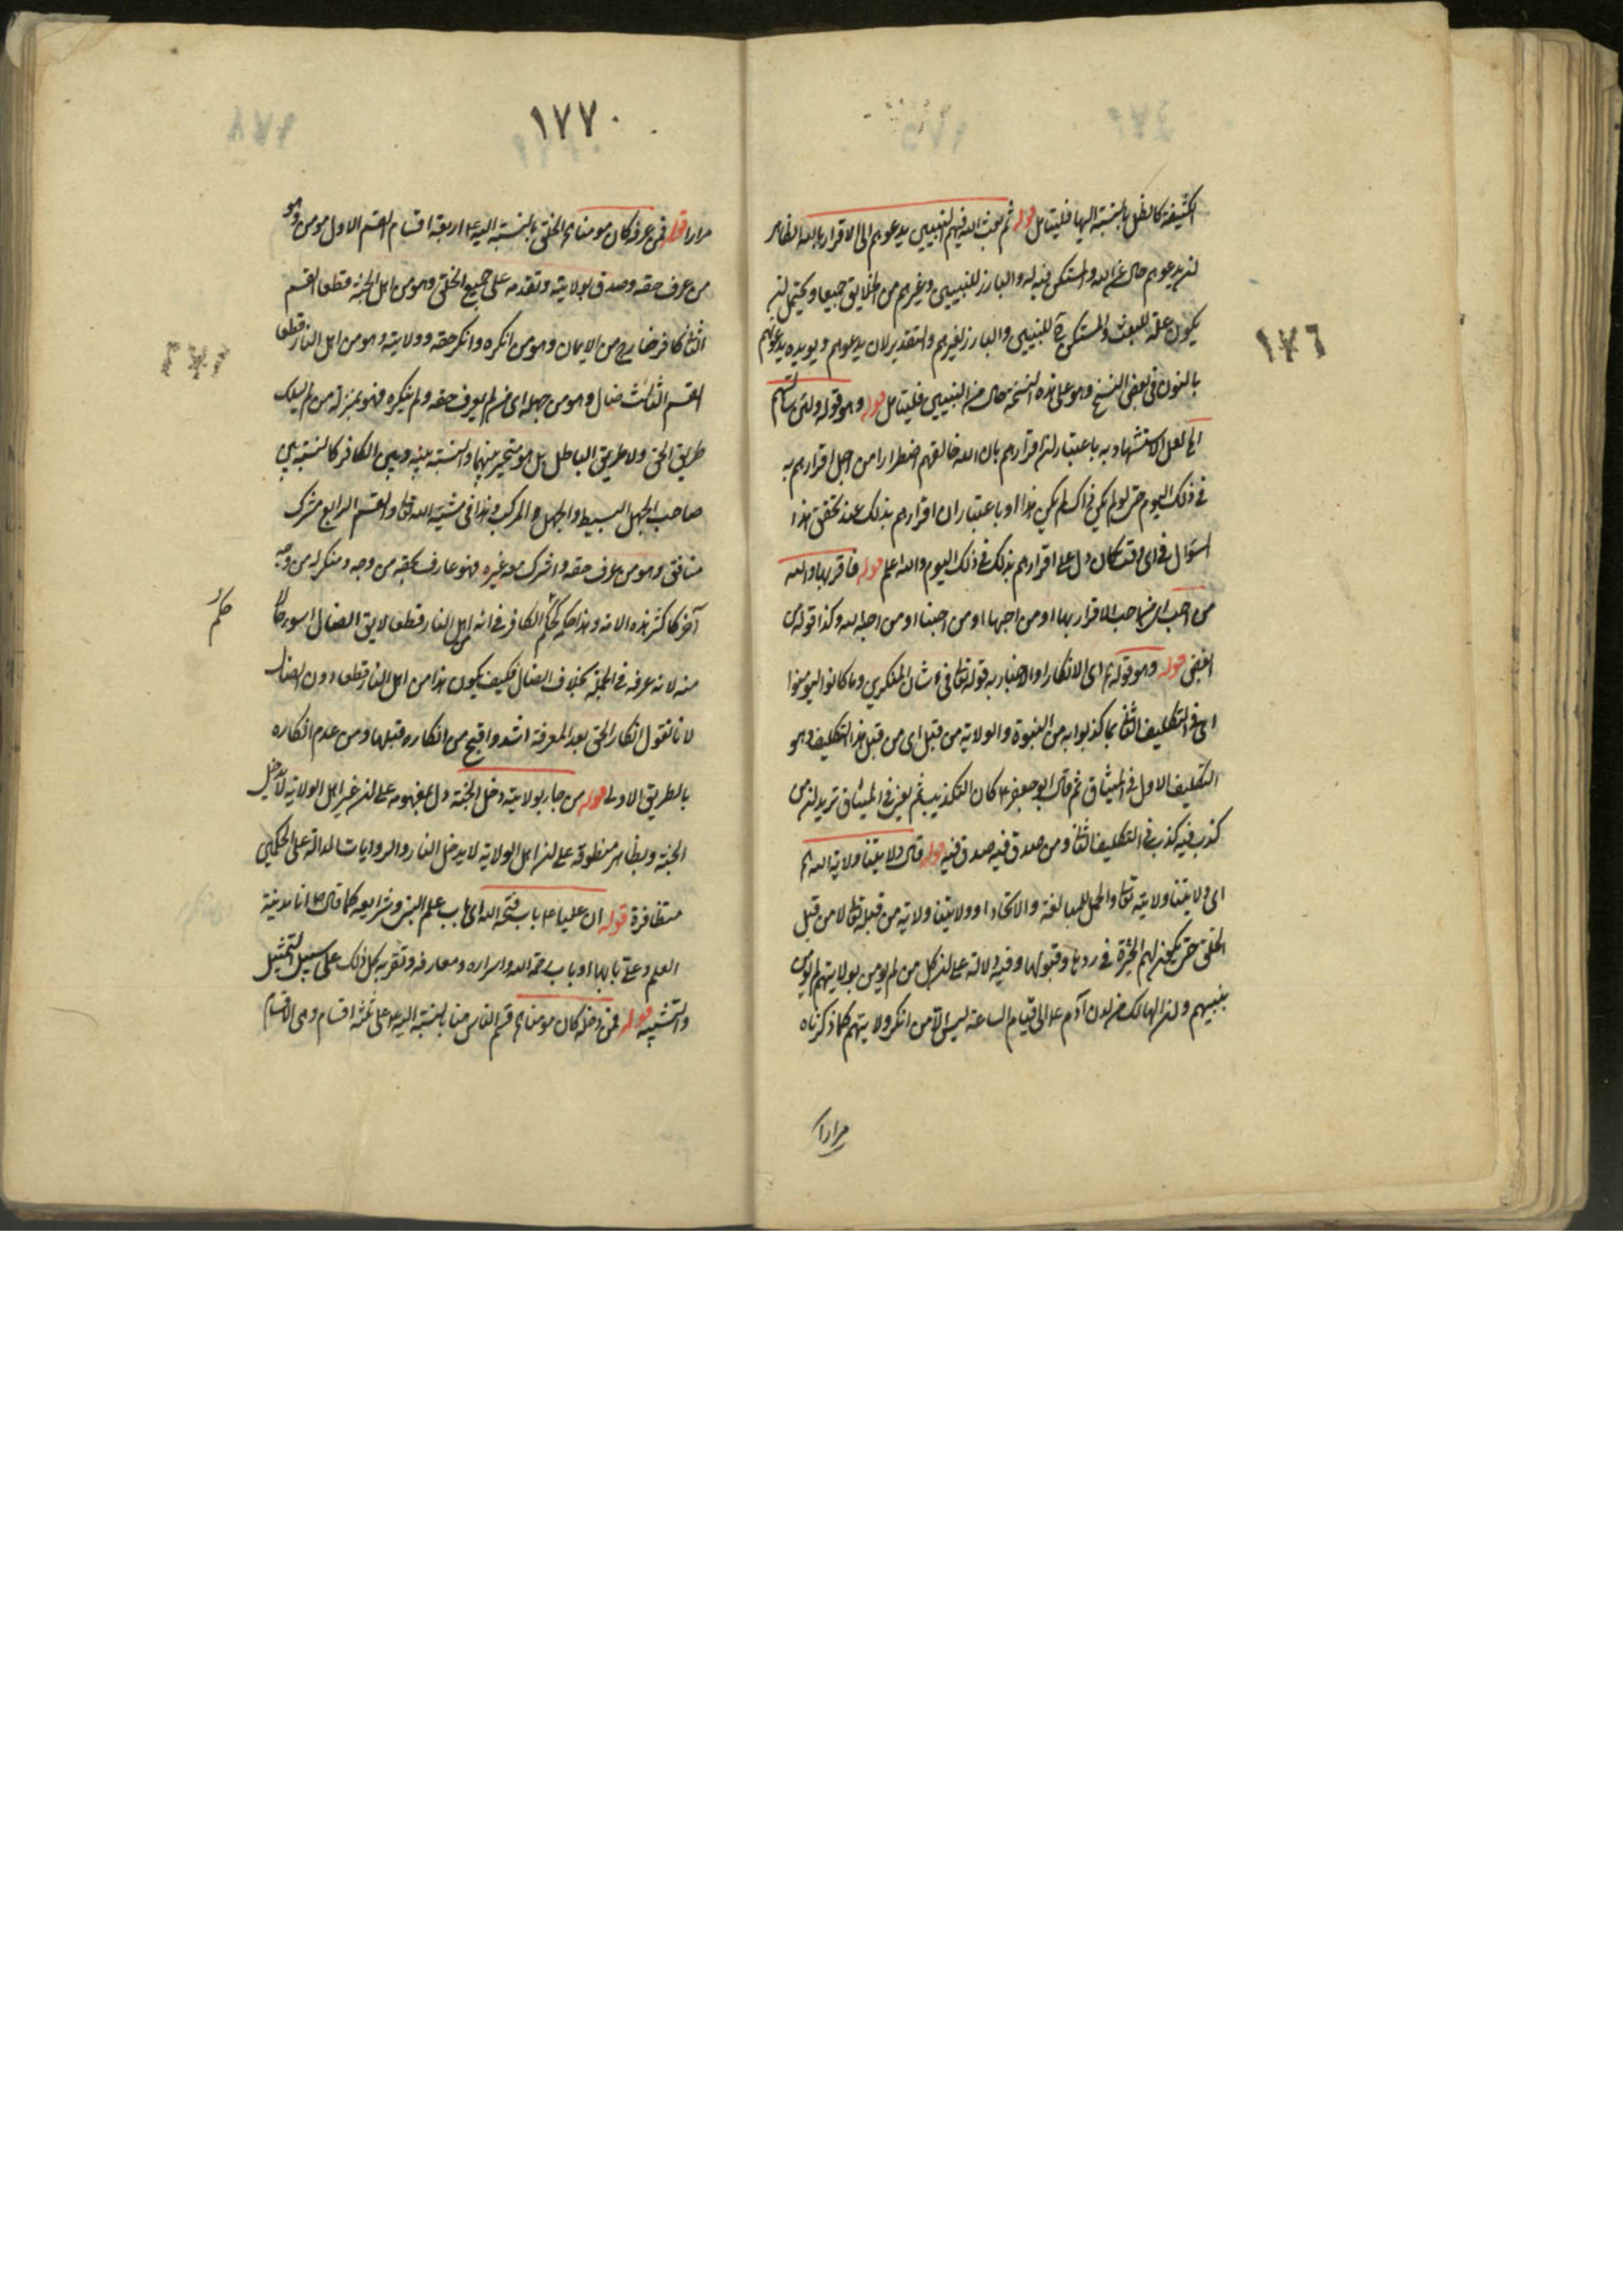 ١٧٦
الكثيفة كالظل بالنسبة اليها فليتامل قوله ثم بعث الله فيهم النبيين يدعوهم الى الاقرار بالله الظاهر
يدعوهم حال عن الله والمستكن فيه له والبارز للنبيين وغيرهم من الخلايق جميعا ويحتمل ان
يكون علة للبعث والمستكن للنبيين والبارز لغيرهم والتقدير لان يدعوهم ويويده يدعونهم
بالنون في بعض النسخ وهو على هذه النسخة حال من النبيين فليتامل قوله وهو قوله ولئن سالتهم
الخ لعل الاستشهاد به باعتبار ان اقرارهم بان الله خالقهم اضطرارا من اجل اقرارهم به
في ذلك اليوم حتى لو لم يكن ذاك لم يكن هذا او باعتبار ان اقرارهم بذلك عند تحقق هذا
السؤال في اي وقت كان دل على اقرارهم بذلك في ذلك اليوم والله اعلم قوله فاقر بها والله
من احب اي من احب الاقرار بها او من احبها او من احبنا او من احبه الله وكذا قوله من
ابغض قوله وهو قوله اي الانكار او الاخبار به قوله تعالى في شان المنكرين وما كانوا ليومنوا
اي في التكليف الثاني بما كذبوا به من النبوة والولاية من قبل اي من قبل هذا التكليف وهو
التكليف الاول في الميثاق ثم قال ابو جعفر ع كان التكذيب ثم يعني في الميثاق يريد ان من
كذب فيه كذب في التكليف الثاني ومن صدق فيه صدق فيه قوله قال ولايتنا ولاية الله
اي ولايتنا ولايته تعالى والحمل للمبالغة والاتحاد او ولايتنا ولاية من قبله تعالى لا من قبل
الخلق حتى يكون لهم الخيرة في ردها وقبولها وفيه دلالة على ان كل من لم يومن بولايتهم لم يومن
بنبيهم وان الهالك من لدن آدم ع الى قيام الساعة ليس الا من انكر ولايتهم كما ذكرناه
مرارا
١٧٧
مرارا قوله فمن عرفه كان مومنا الخ الخلق بالنسبة اليه ع اربعة اقسام القسم الاول مومن وهو
من عرف حقه وصدق بولايته وتقدمه على جميع الخلق وهو من اهل الجنة قطعا القسم
الثاني كافر خارج من الايمان وهو من انكره وانكر حقه وولايته وهو من اهل النار قطعا
القسم الثالث ضال وهو من جهله اي من لم يعرف حقه ولم ينكره فهو بمنزلة من لم يسلك
طريق الحق ولا طريق الباطل بل هو متحير بينهما والنسبة بينه وبين الكافر كالنسبة بين
صاحب الجهل البسيط والجهل المركب وهذا في مشية الله تعالى والقسم الرابع مشرك
منافق وهو من عرف حقه واشرك معه غيره فهو عارف بحقه من وجه ومنكر له من وجه
آخر كاكثر هذه الامة وهذا حكمه حكم الكافر في انه من اهل النار قطعا لا يق الضال اسوء حالا
حكم
منه لانه عرفه في الجملة بخلاف الضال فكيف يكون هذا من اهل النار قطعا دون الضال
لانا نقول انكار الحق بعد المعرفة اشد واقبح من انكاره قبلها ومن عدم انكاره
بالطريق الاولى قوله من جاء بولايته دخل الجنة دل بمفهومه على ان غير اهل الولاية لا يدخل
الجنة وبظاهر منطوقه على ان اهل الولاية لا يدخل النار والروايات الدالة على الحكمين
متظافرة قوله ان عليا ع باب فتحه الله اي باب علم النبي وشرايعه كما قال ص انا مدينة
العلم وعلي بابها او باب رحمة الله واسراره ومعارفه وتقربه كل ذلك على سبيل التمثيل
والتشبيه قوله فمن دخله كان مومنا الخ قسم الناس هنا بالنسبة اليه ع على ثلثة اقسام وهي الاقسام